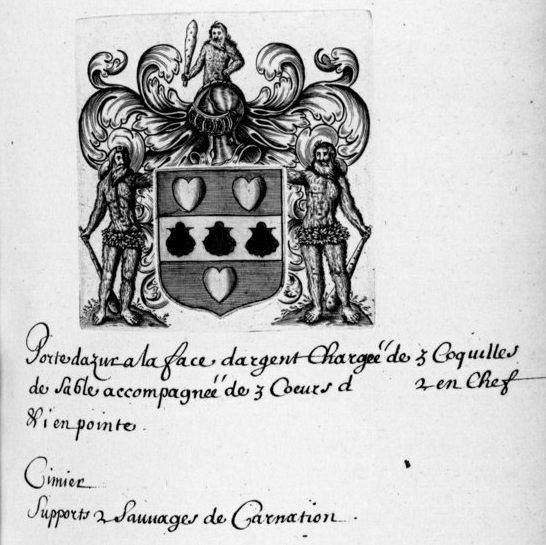 Porte dazur a la face dargent Chargeé de 3 Coquilles
de sable accompagneé de 3 Coeurs d 2 en Chef
& 1 en pointe.
Cimier
Supports 2 Sauvages de Carnation.